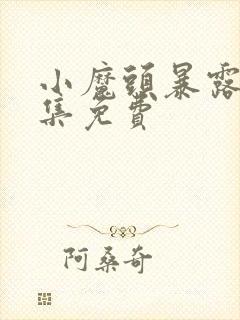 小魔頭暴露
集免費
阿桑奇